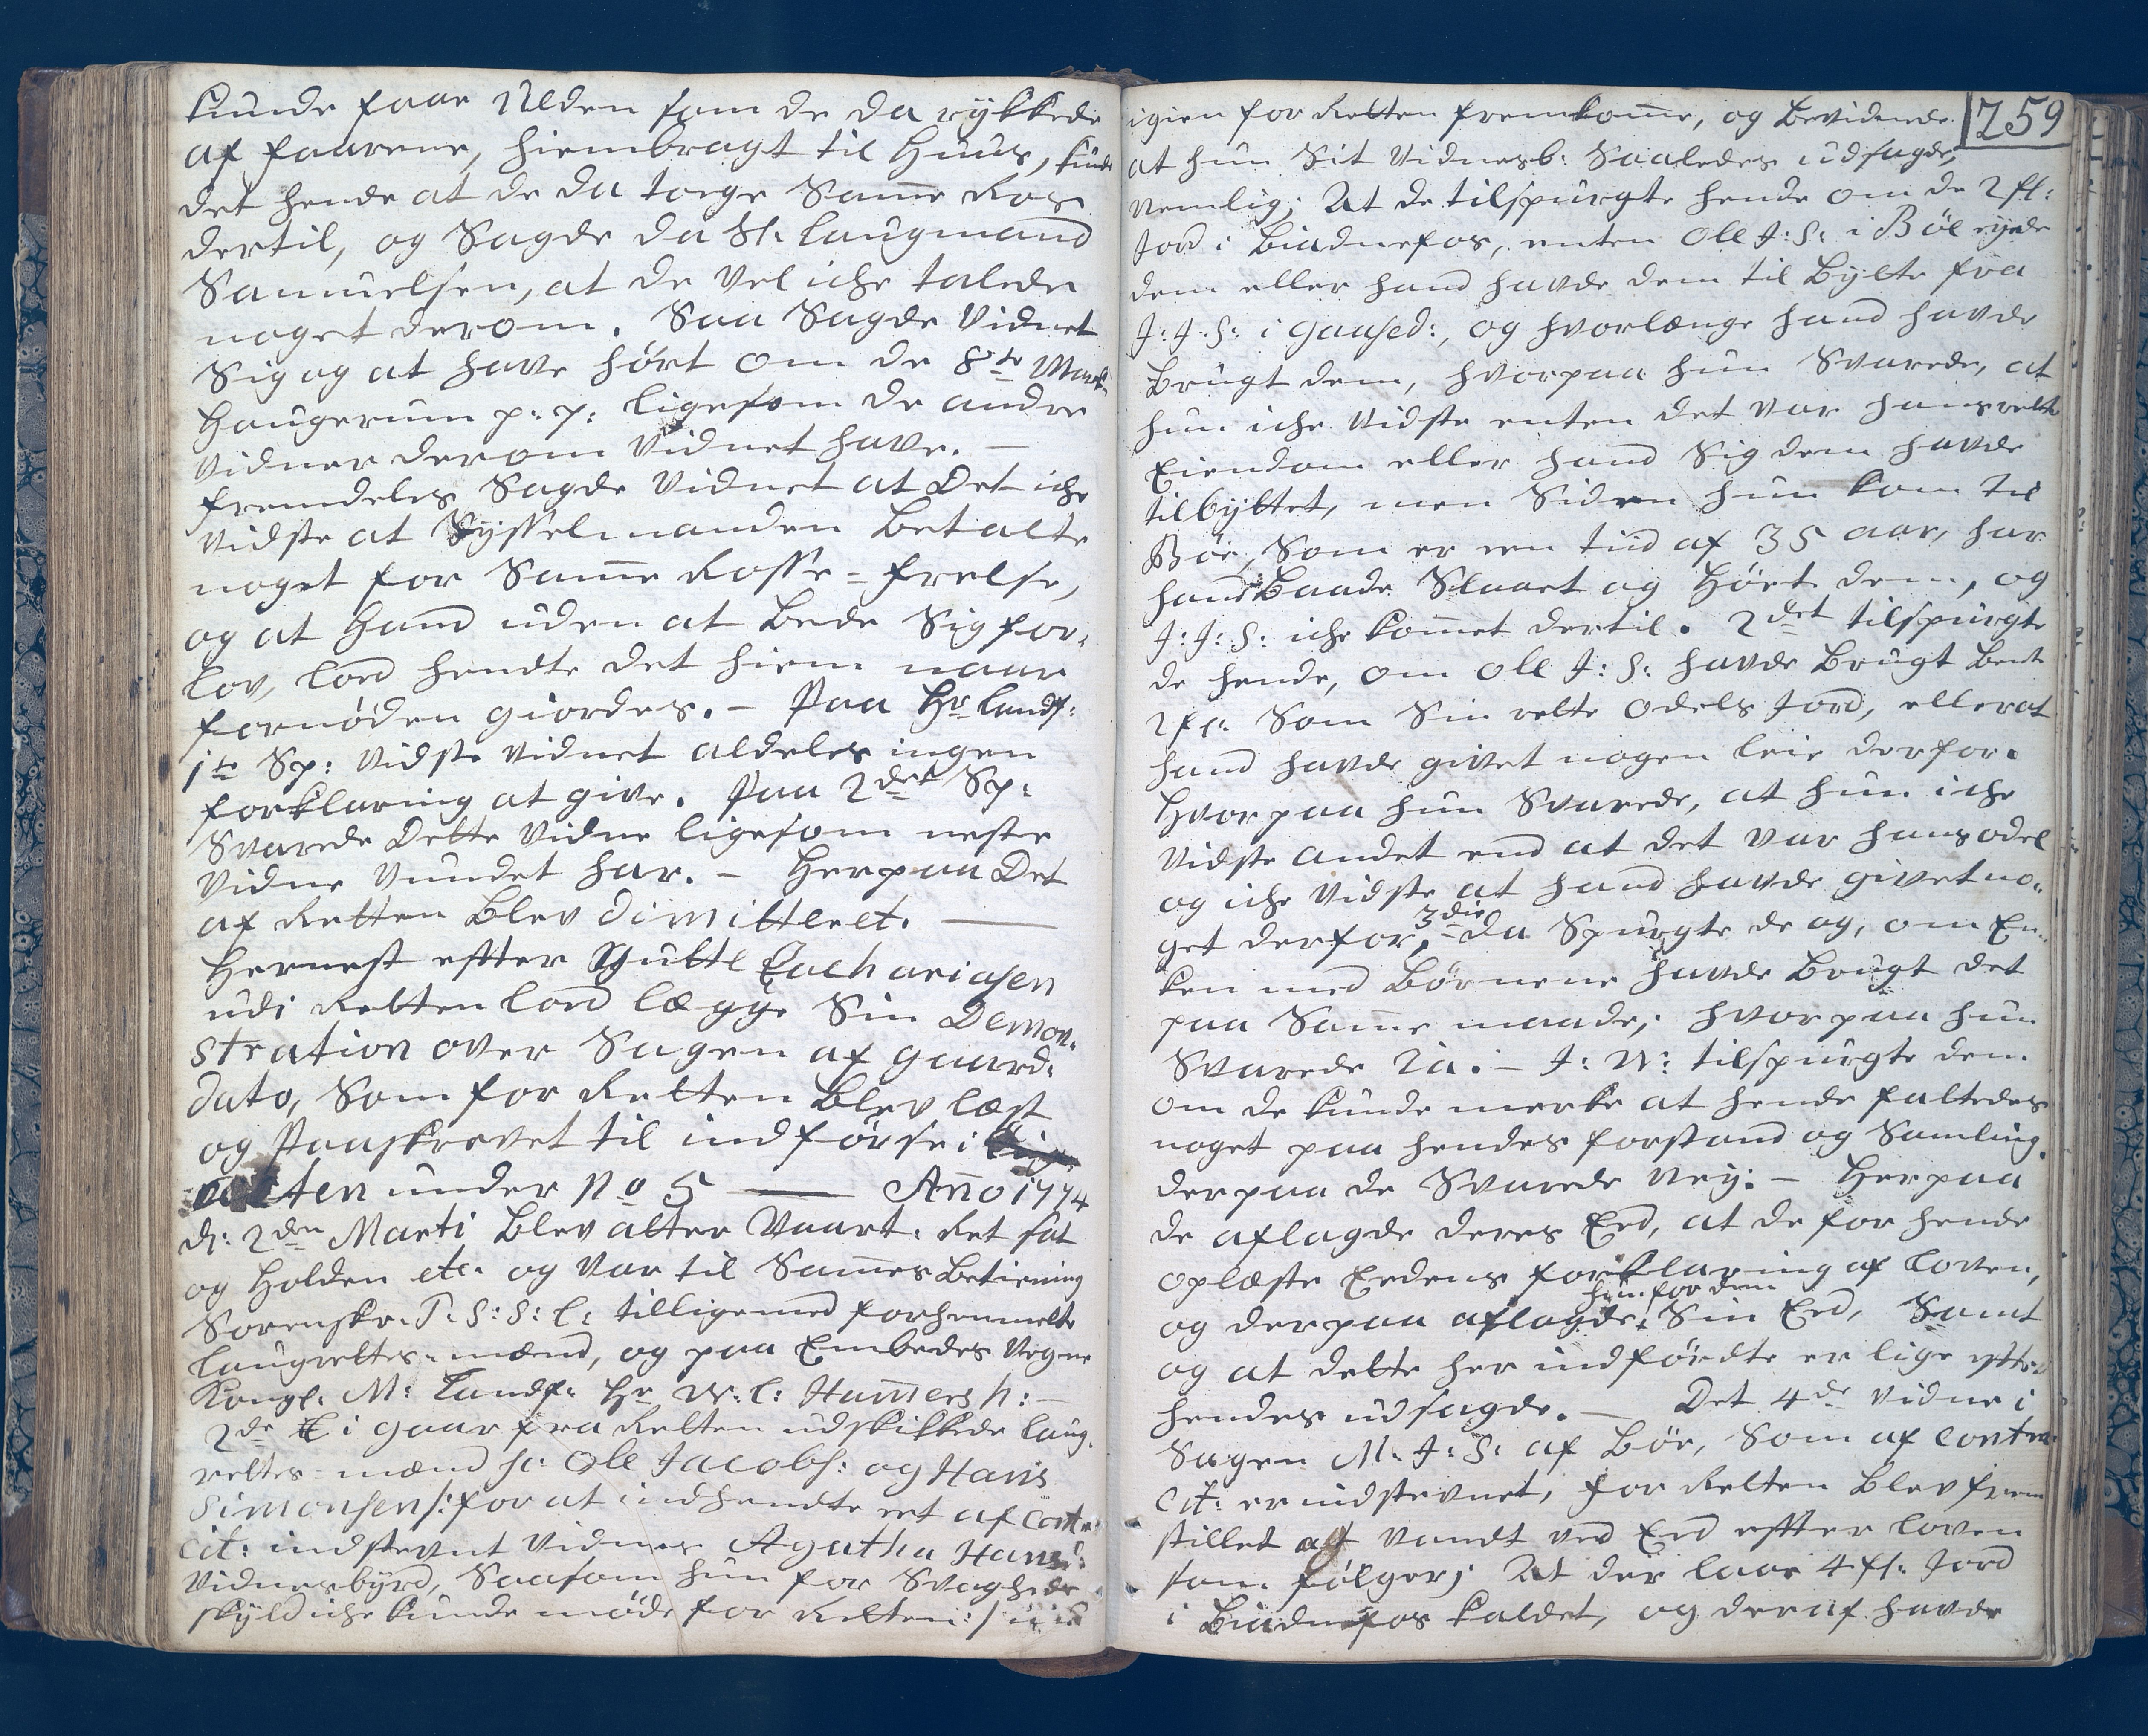 kunde faae Ulden som de da rykkede
af faarene, hiembragt til Huus, kunde
det hende at de da torge Same Ros
dertil, og Sagde da Sl. Laugmand
Samuelsen, at de vel iche talede
noget derom. Saa Sagde Vidnet
Sig og at have hørt om de 8te Mark
Haugerum p: p: ligesom de andre
Vidner derom Vidnet have. —
fremdeles Sagde Vidnet at Det iche
vidste at Sysselmanden Betalte
noget for Same Rosse-frelse,
og at Hand uden at Bede Sig for-
lov, lod hendte det hiem naar
fornøden giordes. — Paa Hr Landf:
1te Sp: vidste vidnet aldeles ingen
forklaring at give. Paa 2det Sp:
Svarede Dette Vidne ligesom neste
Vidne Vundet har. — Herpaa Det
af Retten Blev dimitteret. —
Hernest efter Gutte Zachariasen
udi Retten lod lægge Sin Demon-
stration over Sagen af gaard:
dato, Som for Retten Blev læst
og Paaskrevet til indførse i
acten under No 5 — Anno 1774
d: 2den Marti Blev atter Vaart: Ret sat
og Holden etc. og Var til Sammes Betiening
Sorenskr. P. S: S: L: tilligemed forhenmelte
laugrettes-mænd, og paa Embedes Vegne
Kongl. M: Landf: Hr W: L: Hamersh: —
2de i gaar fra Retten udskikkede laug-
rettes-mænd sc: Ole Jacobs: og Hans
Simonsen/: for at indhendte eet af Contr.
Cit: indstevnt Vidnes Agatha Hans:
Vidnesbyrd, Saasom hun for Svagheds
skyld iche kunde møde for Retten:/
igien for Retten fremkome, og Bevidnede 259
at hun Sit Vidnesb: Saaledes udsagde,
Nemlig; At de tilspurgte hende om de 2 fl:
Jord i Biadnefos, enten Ole J: S: i Böe eyede
dem eller hand havde dem til Bylte fra
J: J: S: i Gaased:, og hvorlænge hand havde
Brugt dem, hvorpaa hun Svarede, at
hun iche vidste enten det var hans rette
Eiendom eller hand Sig dem havde
tilbyttet, men Siden hun kom til
Böe, Som er een tiid af 35 aar, har
hand Baade Slaaet og Höet dem, og
J: J: S: iche komet dertil. 2det tilspurgte
de hende, om Ole J: S: havde Brugt bente
2 fl: Som Sin rette Odels Jord, eller at
hand havde givet nogen leie derfor.
Hvorpaa hun Svarede, at hun iche
vidste andet end at det var hans odel
og iche vidste at hand havde givet no-
get derfor, 3die da Spurgte de og, om En-
ken med Börnene havde Brugt det
paa Same maade; hvorpaa hun
Svarede Ja. — J: N: tilspurgte dem
om de kunde merke at hende faltedes
noget paa hendes forstand og Samling.
derpaa de Svarede Ney. — Herpaa
de aflagde deres Eed, at de for hende
oplæste Eedens forklaring af Loven,
og derpaa aflagde hun for dem Sin Eed, Samt
og at dette her indfördte er lige efter
hendes udsagde. — Det 4de Vidne i
Sagen M. J: S: af Böe, Som af Contra
Cit: er indstevnet, for Retten Blev frem
stillet at vandt ved Eed efter loven
som fölger; At der laae 4 fl. Jord
i Biadnefos kaldet, og deraf havde